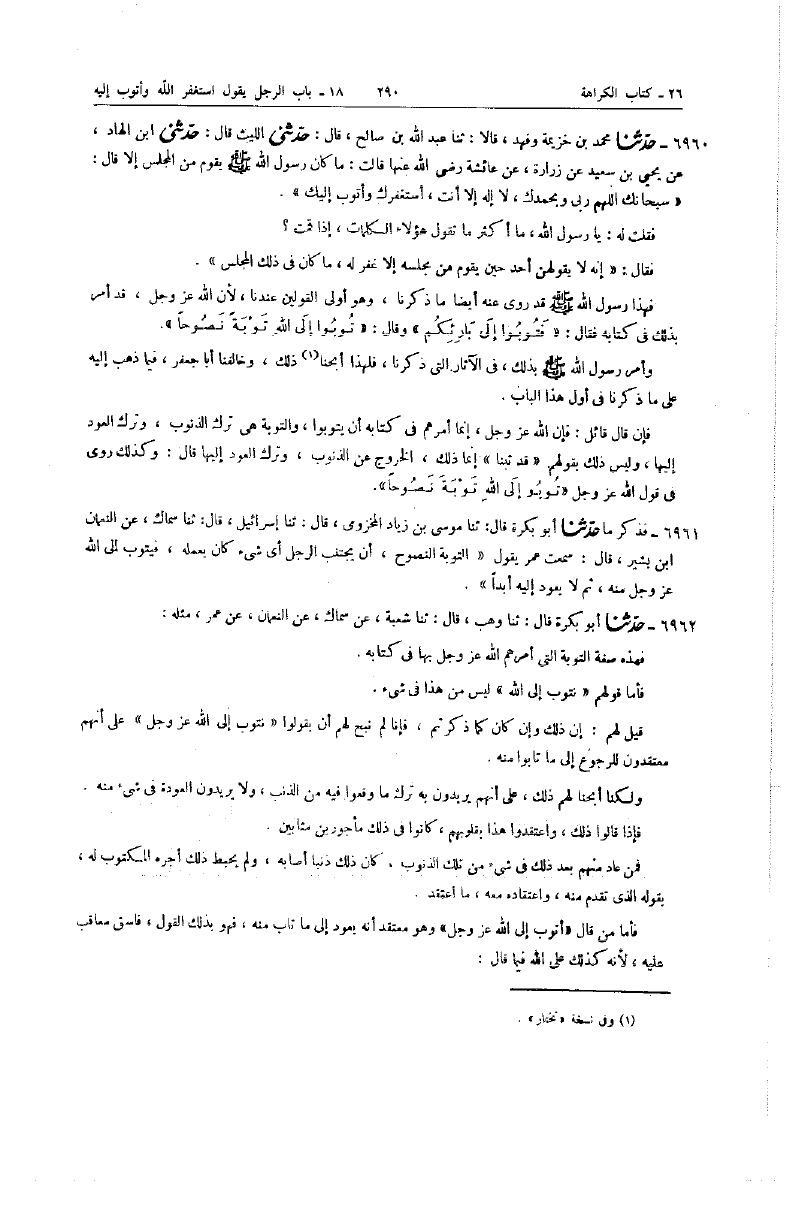 ٢٦ - كتاب الكراهة ٢٩٠ ١٨ - باب الرجل يقول استغفر الله وأتوب إليه
٦٩٦٠ - حدثنا محمد بن خزيمة وفهد ، قالا : ثنا عبد الله بن صالح ، قال : حدثنى الليث قال : حدثنى ابن الهاد ،
عن يحيى بن سعيد عن زرارة ، عن عائشة رضى الله عنها قالت : ما كان رسول الله ﷺ يقوم من المجلس إلا قال :
« سبحانك اللهم ربى وبحمدك ، لا إله إلا أنت ، أستغفرك وأتوب إليك » .
فقلت له : يا رسول الله ، ما أكثر ما تقول هؤلاء الكلمات ، إذا قمت ؟
فقال : « إنه لا يقولهن أحد حين يقوم من مجلسه إلا غفر له ، ما كان فى ذلك المجلس » .
فهذا رسول الله ﷺ قد روى عنه أيضا ما ذكرنا ، وهو أولى القولين عندنا ، لأن الله عز وجل ، قد أمر
بذلك فى كتابه فقال : « فَتُوبُوا إلَى بَارِئِكُم » وقال : « تُوبُوا إلَى اللهِ تَوْبَةً نَصُوحاً ».
وأمر رسول الله ﷺ بذلك ، فى الآثار التى ذكرنا ، فلهذا أبحنا(١) ذلك ، وخالفنا أبا جعفر ، فيما ذهب إليه
على ما ذكرنا فى أول هذا الباب .
فإن قال قائل : فإن الله عز وجل ، إنما أمرهم فى كتابه أن يتوبوا ، والتوبة هى ترك الذنوب ، وترك العود
إليها ، وليس ذلك بقولهم « قد تبنا » إنما ذلك ، الخروج عن الذنوب ، وترك العود إليها قال : وكذلك روى
فى قول الله عز وجل «تُوبُو إلَى اللهِ تَوْبَةً نَصُوحاً».
٦٩٦١ - فذكر ما حدثنا أبو بكرة قال: ثنا موسى بن زياد المخزومى ، قال : ثنا إسرائيل ، قال: ثنا سماك ، عن النعمان
ابن بشير ، قال : سمعت عمر يقول « التوبة النصوح ، أن يجتنب الرجل أى شىء كان يعمله ، فيتوب إلى الله
عز وجل منه ، ثم لا يعود إليه أبداً » .
٦٩٦٢ - حدثنا أبو بكرة قال : ثنا وهب ، قال : ثنا شعبة ، عن سماك ، عن النعمان ، عن عمر ، مثله :
فهذه صفة التوبة التى أمرهم الله عز وجل بها فى كتابه .
فأما قولهم « نتوب إلى الله » ليس من هذا فى شىء .
قيل لهم : إن ذلك وإن كان كما ذكرتم ، فإنا لم نبح لهم أن يقولوا « نتوب إلى الله عز وجل » على أنهم
معتقدون للرجوع إلى ما تابوا منه .
ولكنا أبحنا لهم ذلك ، على أنهم يريدون به ترك ما وقعوا فيه من الذنب ، ولا يريدون العودة فى شىء منه .
فإذا قالوا ذلك ، واعتقدوا هذا بقلوبهم ، كانوا فى ذلك مأجورين مثابين .
فمن عاد منهم بعد ذلك فى شىء من تلك الذنوب ، كان ذلك ذنبا أصابه ، ولم يحبط ذلك أجره المكتوب له ،
بقوله الذى تقدم منه ، واعتقاده معه ، ما اعتقد .
فأما من قال «أتوب إلى الله عز وجل» وهو معتقد أنه يعود إلى ما تاب منه ، فهو بذلك القول ، فاسق معاقب
عليه ، لأنه كذلك على الله فيما قال :
(١) وفى نسخة «نختار» .